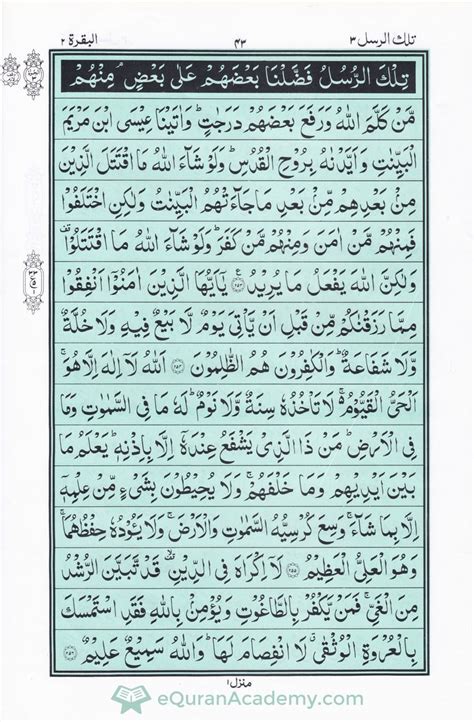 تلك الرسل ٣ ٤٣ البقرة ٢
تِلْكَ الرُّسُلُ فَضَّلْنَا بَعْضَهُمْ عَلٰى بَعْضٍ ۘ مِنْهُمْ
مَّنْ كَلَّمَ اللّٰهُ وَرَفَعَ بَعْضَهُمْ دَرَجٰتٍ ؕ وَاٰتَيْنَا عِيْسَى ابْنَ مَرْيَمَ
الْبَيِّنٰتِ وَاَيَّدْنٰهُ بِرُوْحِ الْقُدُسِ ؕ وَلَوْ شَآءَ اللّٰهُ مَا اقْتَتَلَ الَّذِيْنَ
مِنْۢ بَعْدِهِمْ مِّنْۢ بَعْدِ مَا جَآءَتْهُمُ الْبَيِّنٰتُ وَلٰكِنِ اخْتَلَفُوْا
فَمِنْهُمْ مَّنْ اٰمَنَ وَمِنْهُمْ مَّنْ كَفَرَ ؕ وَلَوْ شَآءَ اللّٰهُ مَا اقْتَتَلُوْا
وَلٰكِنَّ اللّٰهَ يَفْعَلُ مَا يُرِيْدُ ۝٢٥٣ يٰۤاَيُّهَا الَّذِيْنَ اٰمَنُوْۤا اَنْفِقُوْا
مِمَّا رَزَقْنٰكُمْ مِّنْ قَبْلِ اَنْ يَّاْتِيَ يَوْمٌ لَّا بَيْعٌ فِيْهِ وَلَا خُلَّةٌ
وَّلَا شَفَاعَةٌ ؕ وَالْكٰفِرُوْنَ هُمُ الظّٰلِمُوْنَ ۝٢٥٤ اَللّٰهُ لَاۤ اِلٰهَ اِلَّا هُوَ ۚ
اَلْحَيُّ الْقَيُّوْمُ ۚ لَا تَاْخُذُهٗ سِنَةٌ وَّلَا نَوْمٌ ؕ لَهٗ مَا فِي السَّمٰوٰتِ وَمَا
فِي الْاَرْضِ ؕ مَنْ ذَا الَّذِيْ يَشْفَعُ عِنْدَهٗۤ اِلَّا بِاِذْنِهٖ ؕ يَعْلَمُ مَا
بَيْنَ اَيْدِيْهِمْ وَمَا خَلْفَهُمْ ۚ وَلَا يُحِيْطُوْنَ بِشَيْءٍ مِّنْ عِلْمِهٖۤ
اِلَّا بِمَا شَآءَ ۚ وَسِعَ كُرْسِيُّهُ السَّمٰوٰتِ وَالْاَرْضَ ۚ وَلَا يَـُٔوْدُهٗ حِفْظُهُمَا ۚ
وَهُوَ الْعَلِيُّ الْعَظِيْمُ ۝٢٥٥ لَاۤ اِكْرَاهَ فِي الدِّيْنِ ۙ قَدْ تَّبَيَّنَ الرُّشْدُ
مِنَ الْغَيِّ ۚ فَمَنْ يَّكْفُرْ بِالطَّاغُوْتِ وَيُؤْمِنْۢ بِاللّٰهِ فَقَدِ اسْتَمْسَكَ
بِالْعُرْوَةِ الْوُثْقٰى ۗ لَا انْفِصَامَ لَهَا ؕ وَاللّٰهُ سَمِيْعٌ عَلِيْمٌ ۝٢٥٦
منزل ١
eQuranAcademy.com